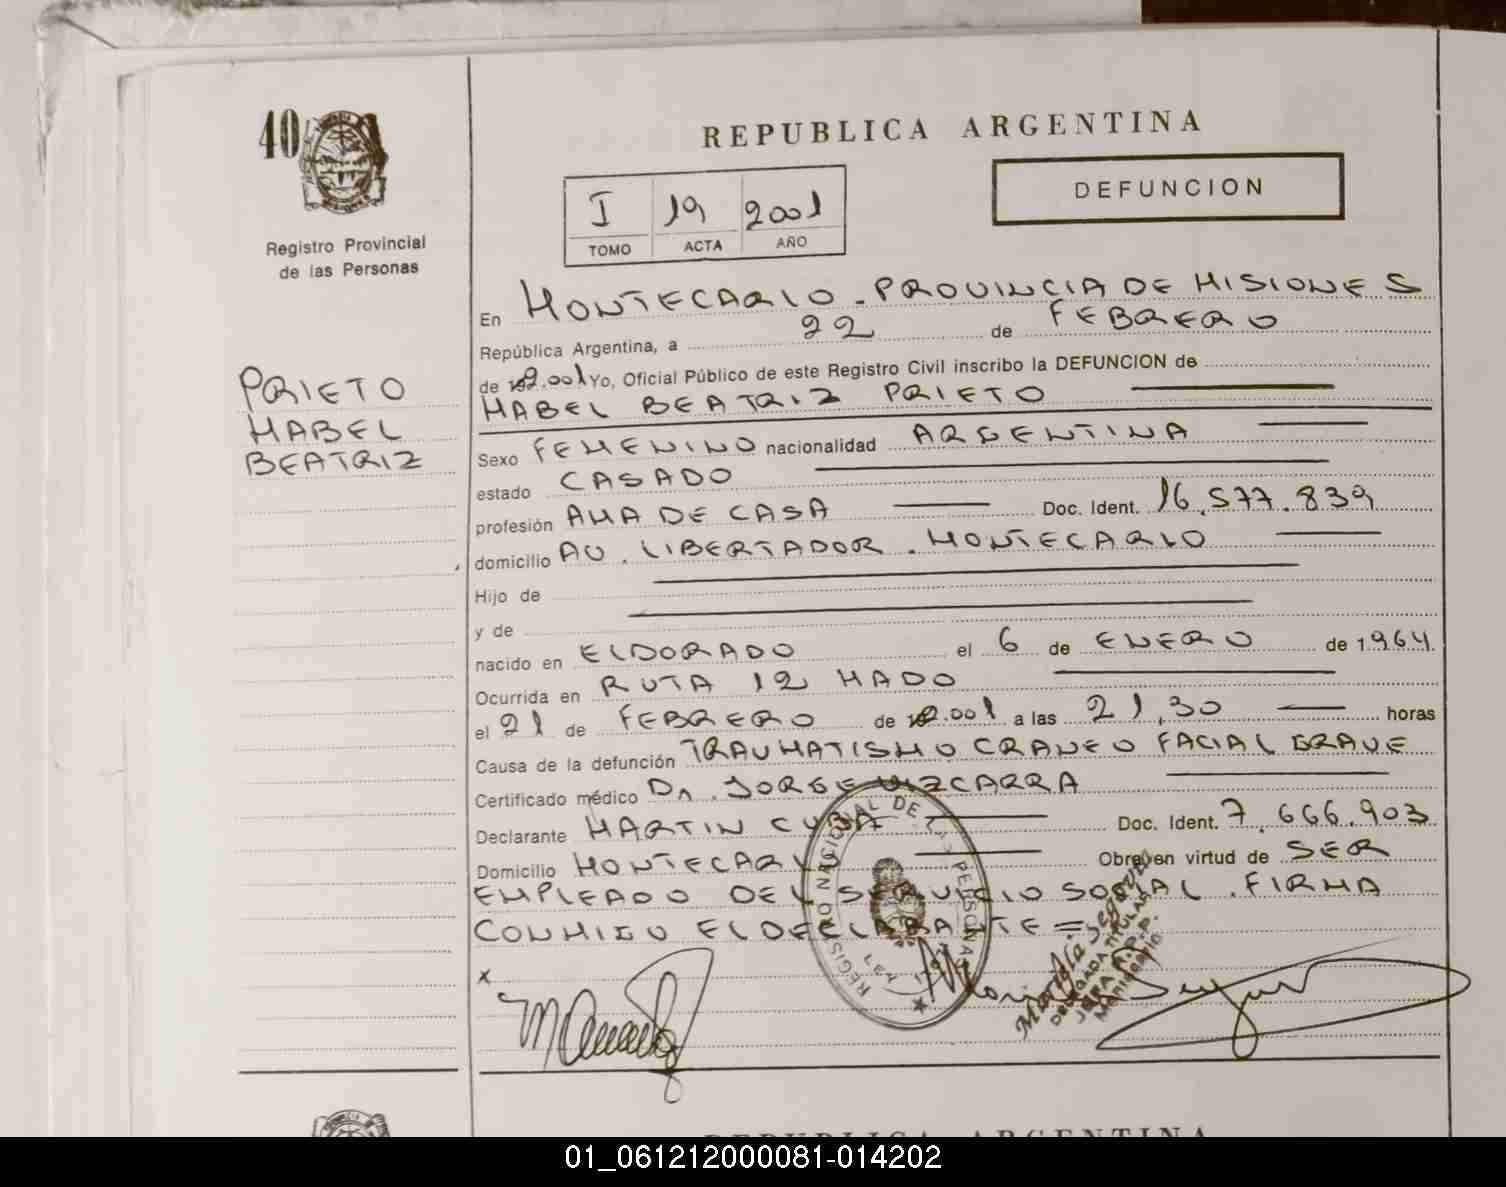 40
Registro Provincial
de las Personas
PRIETO
MABEL
BEATRIZ
REPUBLICA ARGENTINA
DEFUNCION
I 19 2001
TOMO ACTA AÑO
En MONTECARLO - PROVINCIA DE MISIONES
República Argentina, a 22 de FEBRERO
de 2.001 Yo, Oficial Público de este Registro Civil inscribo la DEFUNCION de
MABEL BEATRIZ PRIETO
Sexo FEMENINO nacionalidad ARGENTINA
estado CASADO
profesión AMA DE CASA Doc. Ident. 16.577.839
domicilio AV. LIBERTADOR. MONTECARLO
Hijo de
y de
nacido en ELDORADO el 6 de ENERO de 1.964.
Ocurrida en RUTA 12 MADO
el 21 de FEBRERO de 2.001 a las 21,30 horas
Causa de la defunción TRAUMATISMO CRANEO FACIAL GRAVE
Certificado médico Dr. JORGE VIZCARRA
Declarante MARTIN Doc. Ident. 7.666.903
Domicilio MONTECARLO Obra en virtud de SER
EMPLEADO DEL SERVICIO SOCIAL. FIRMA
CONMIGO EL DECLARANTE =
x
REGISTRO NACIONAL DE LAS PERSONAS
LEY
DELEGADA TITULAR
JEFA R.P.P.
Montecarlo
REPUBLICA ARGENTINA
01_061212000081-014202